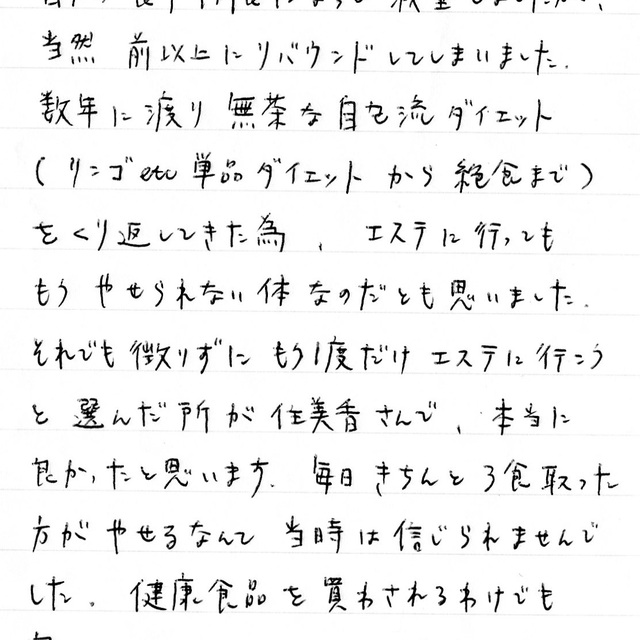 当然 前以上にリバウンドしてしまいました.
数年に渡り 無茶な自己流ダイエット
(リンゴetc 単品ダイエットから絶食まで)
をくり返してきた為、エステに行っても
もう やせられない体なのだとも思いました.
それでも 懲りずに もう1度だけ エステに行こう
と 選んだ所が 佳美香さんで、本当に
良かったと思います. 毎日 きちんと3食取った
方が やせるなんて 当時は信じられませんで
した。 健康食品を買わされるわけでも